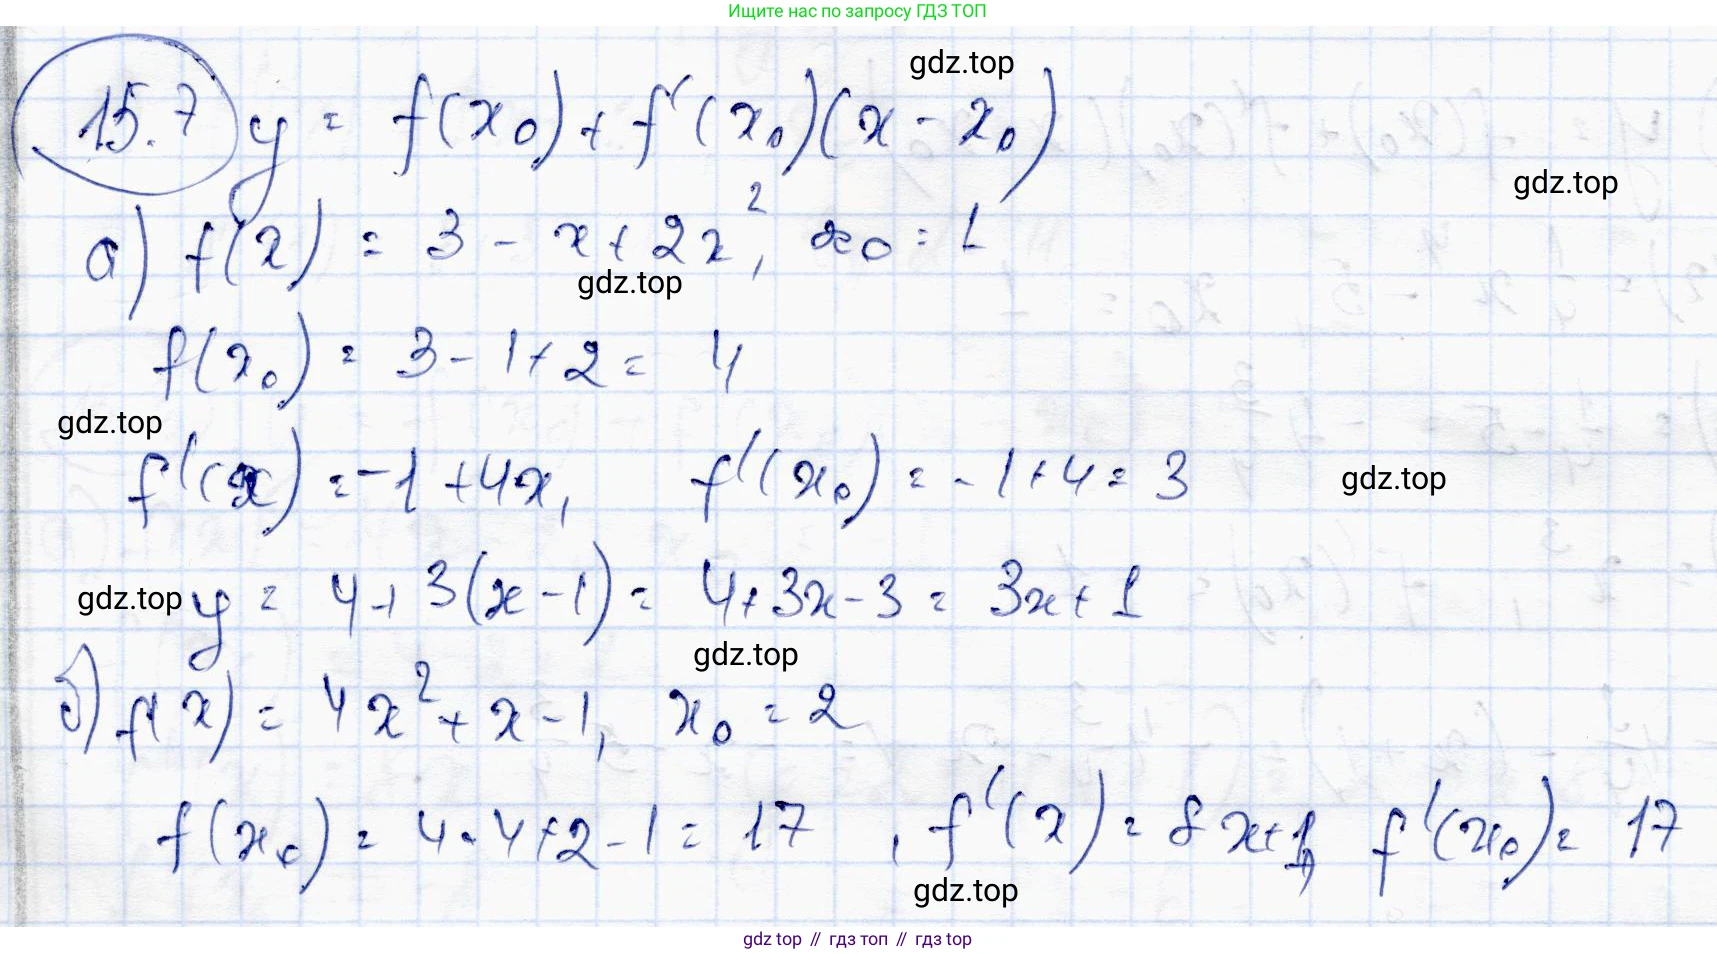 Ищите нас по запросу ГДЗ ТОП
15.7 y = f(x₀) + f'(x₀)(x - x₀)
gdz.top
gdz.top
а) f(x) = 3 - x + 2x², x₀ = 1
gdz.top
f(x₀) = 3 - 1 + 2 = 4
gdz.top
f'(x) = -1 + 4x, f'(x₀) = -1 + 4 = 3
gdz.top
gdz.top
y = 4 + 3(x - 1) = 4 + 3x - 3 = 3x + 1
gdz.top
б) f(x) = 4x² + x - 1, x₀ = 2
f(x₀) = 4·4 + 2 - 1 = 17, f'(x) = 8x + 1, f'(x₀) = 17
gdz.top
gdz top // гдз топ // gdz top